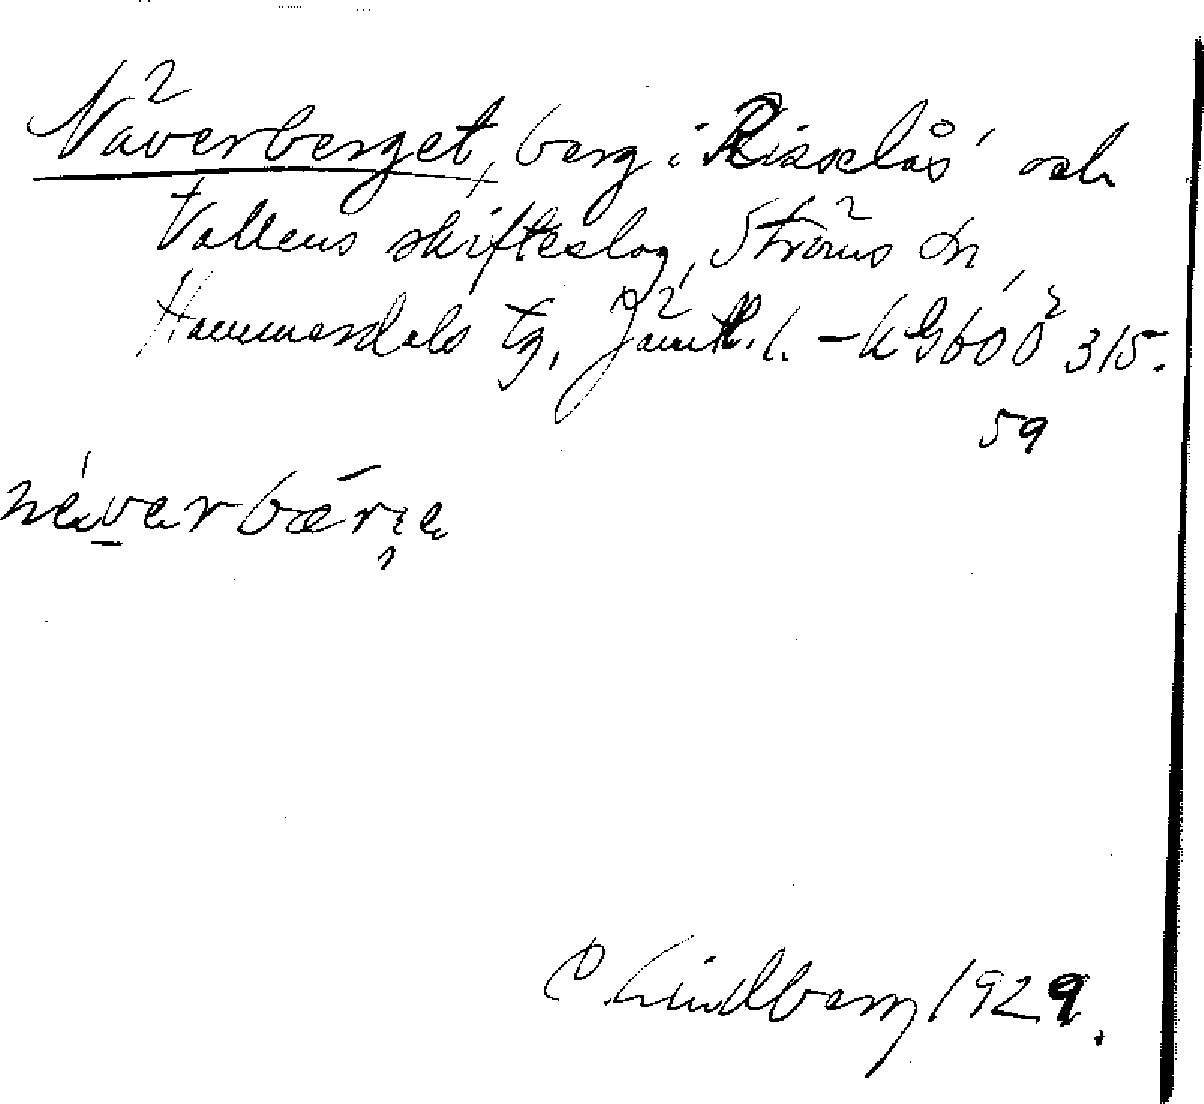 Näverberget, berg i Risselås' och
Vallens skifteslag, Ströms sn,
Hammerdals tg, Jämtl. l. – 315.
59
C Lindberg 1929.